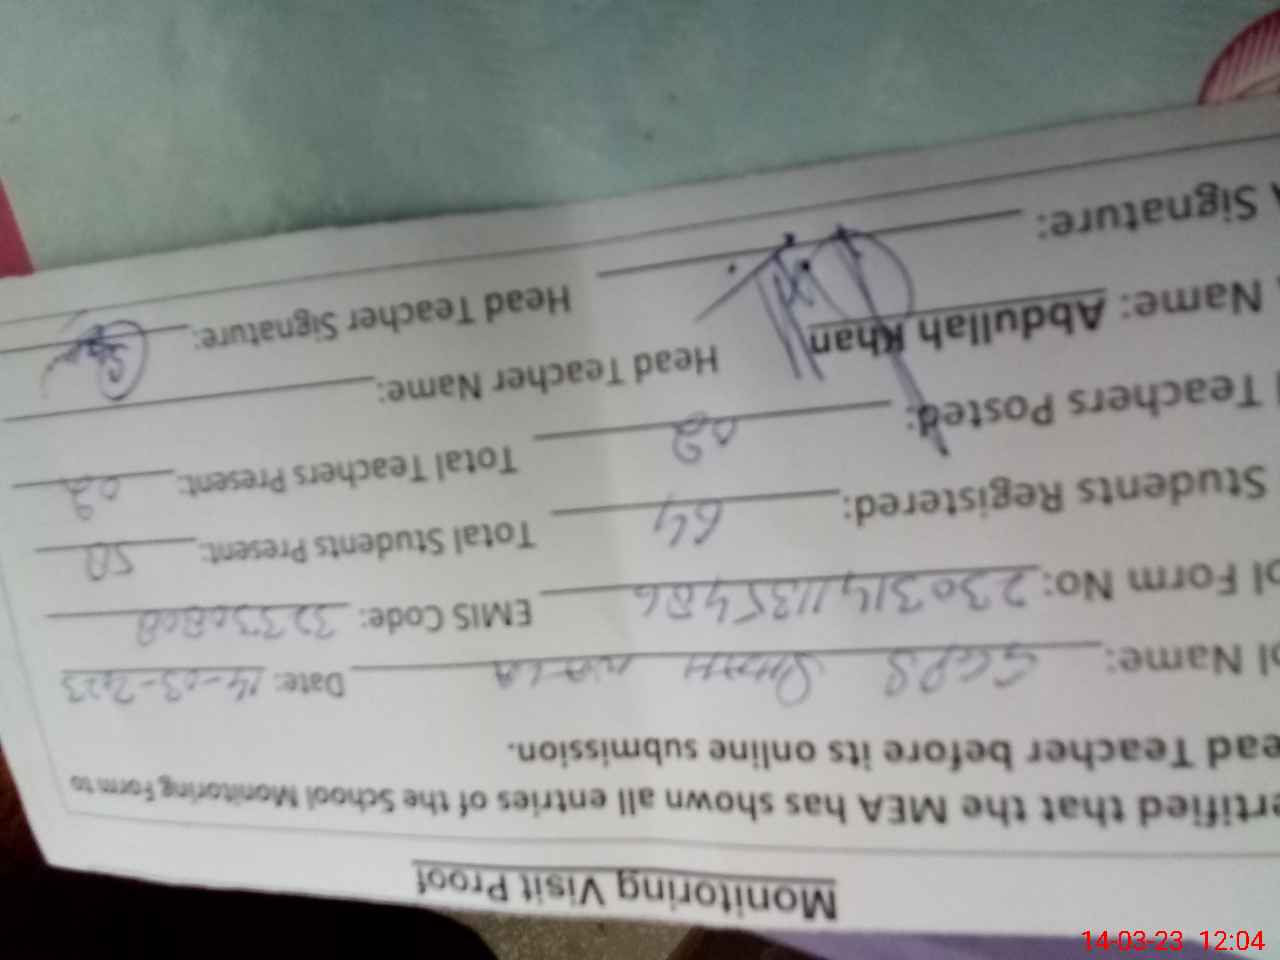 Monitoring Visit Proof
ertified that the MEA has shown all entries of the School Monitoring Form to
ead Teacher before its online submission.
ol Name: GGPS WALA Date: 14-03-2023
ol Form No: 2303141135486 EMIS Code: 32330808
Students Registered: 64 Total Students Present: 50
Teachers Posted: 02 Total Teachers Present: 02
Name: Abdullah Khan Head Teacher Name:
Signature: Head Teacher Signature:
14-03-23 12:04